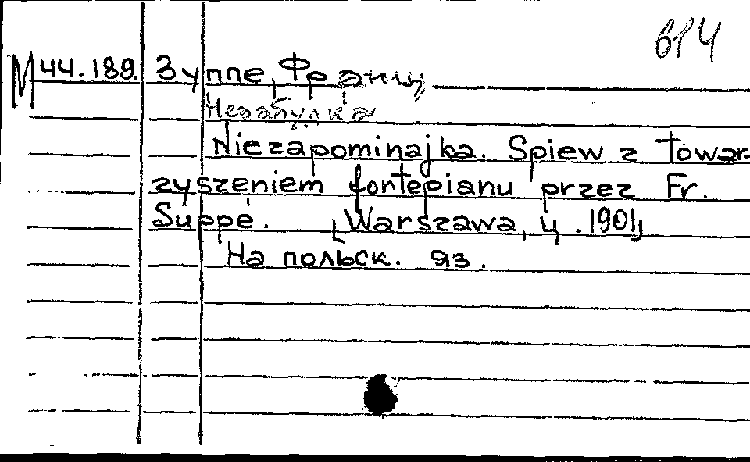 614
М 44.189. Зуппе, Франц
Незабудка
Niezapominajka. Spiew z towar-
zyszeniem fortepianu przez Fr.
Suppé. [Warszawa, ц. 1901]
На польск. яз.